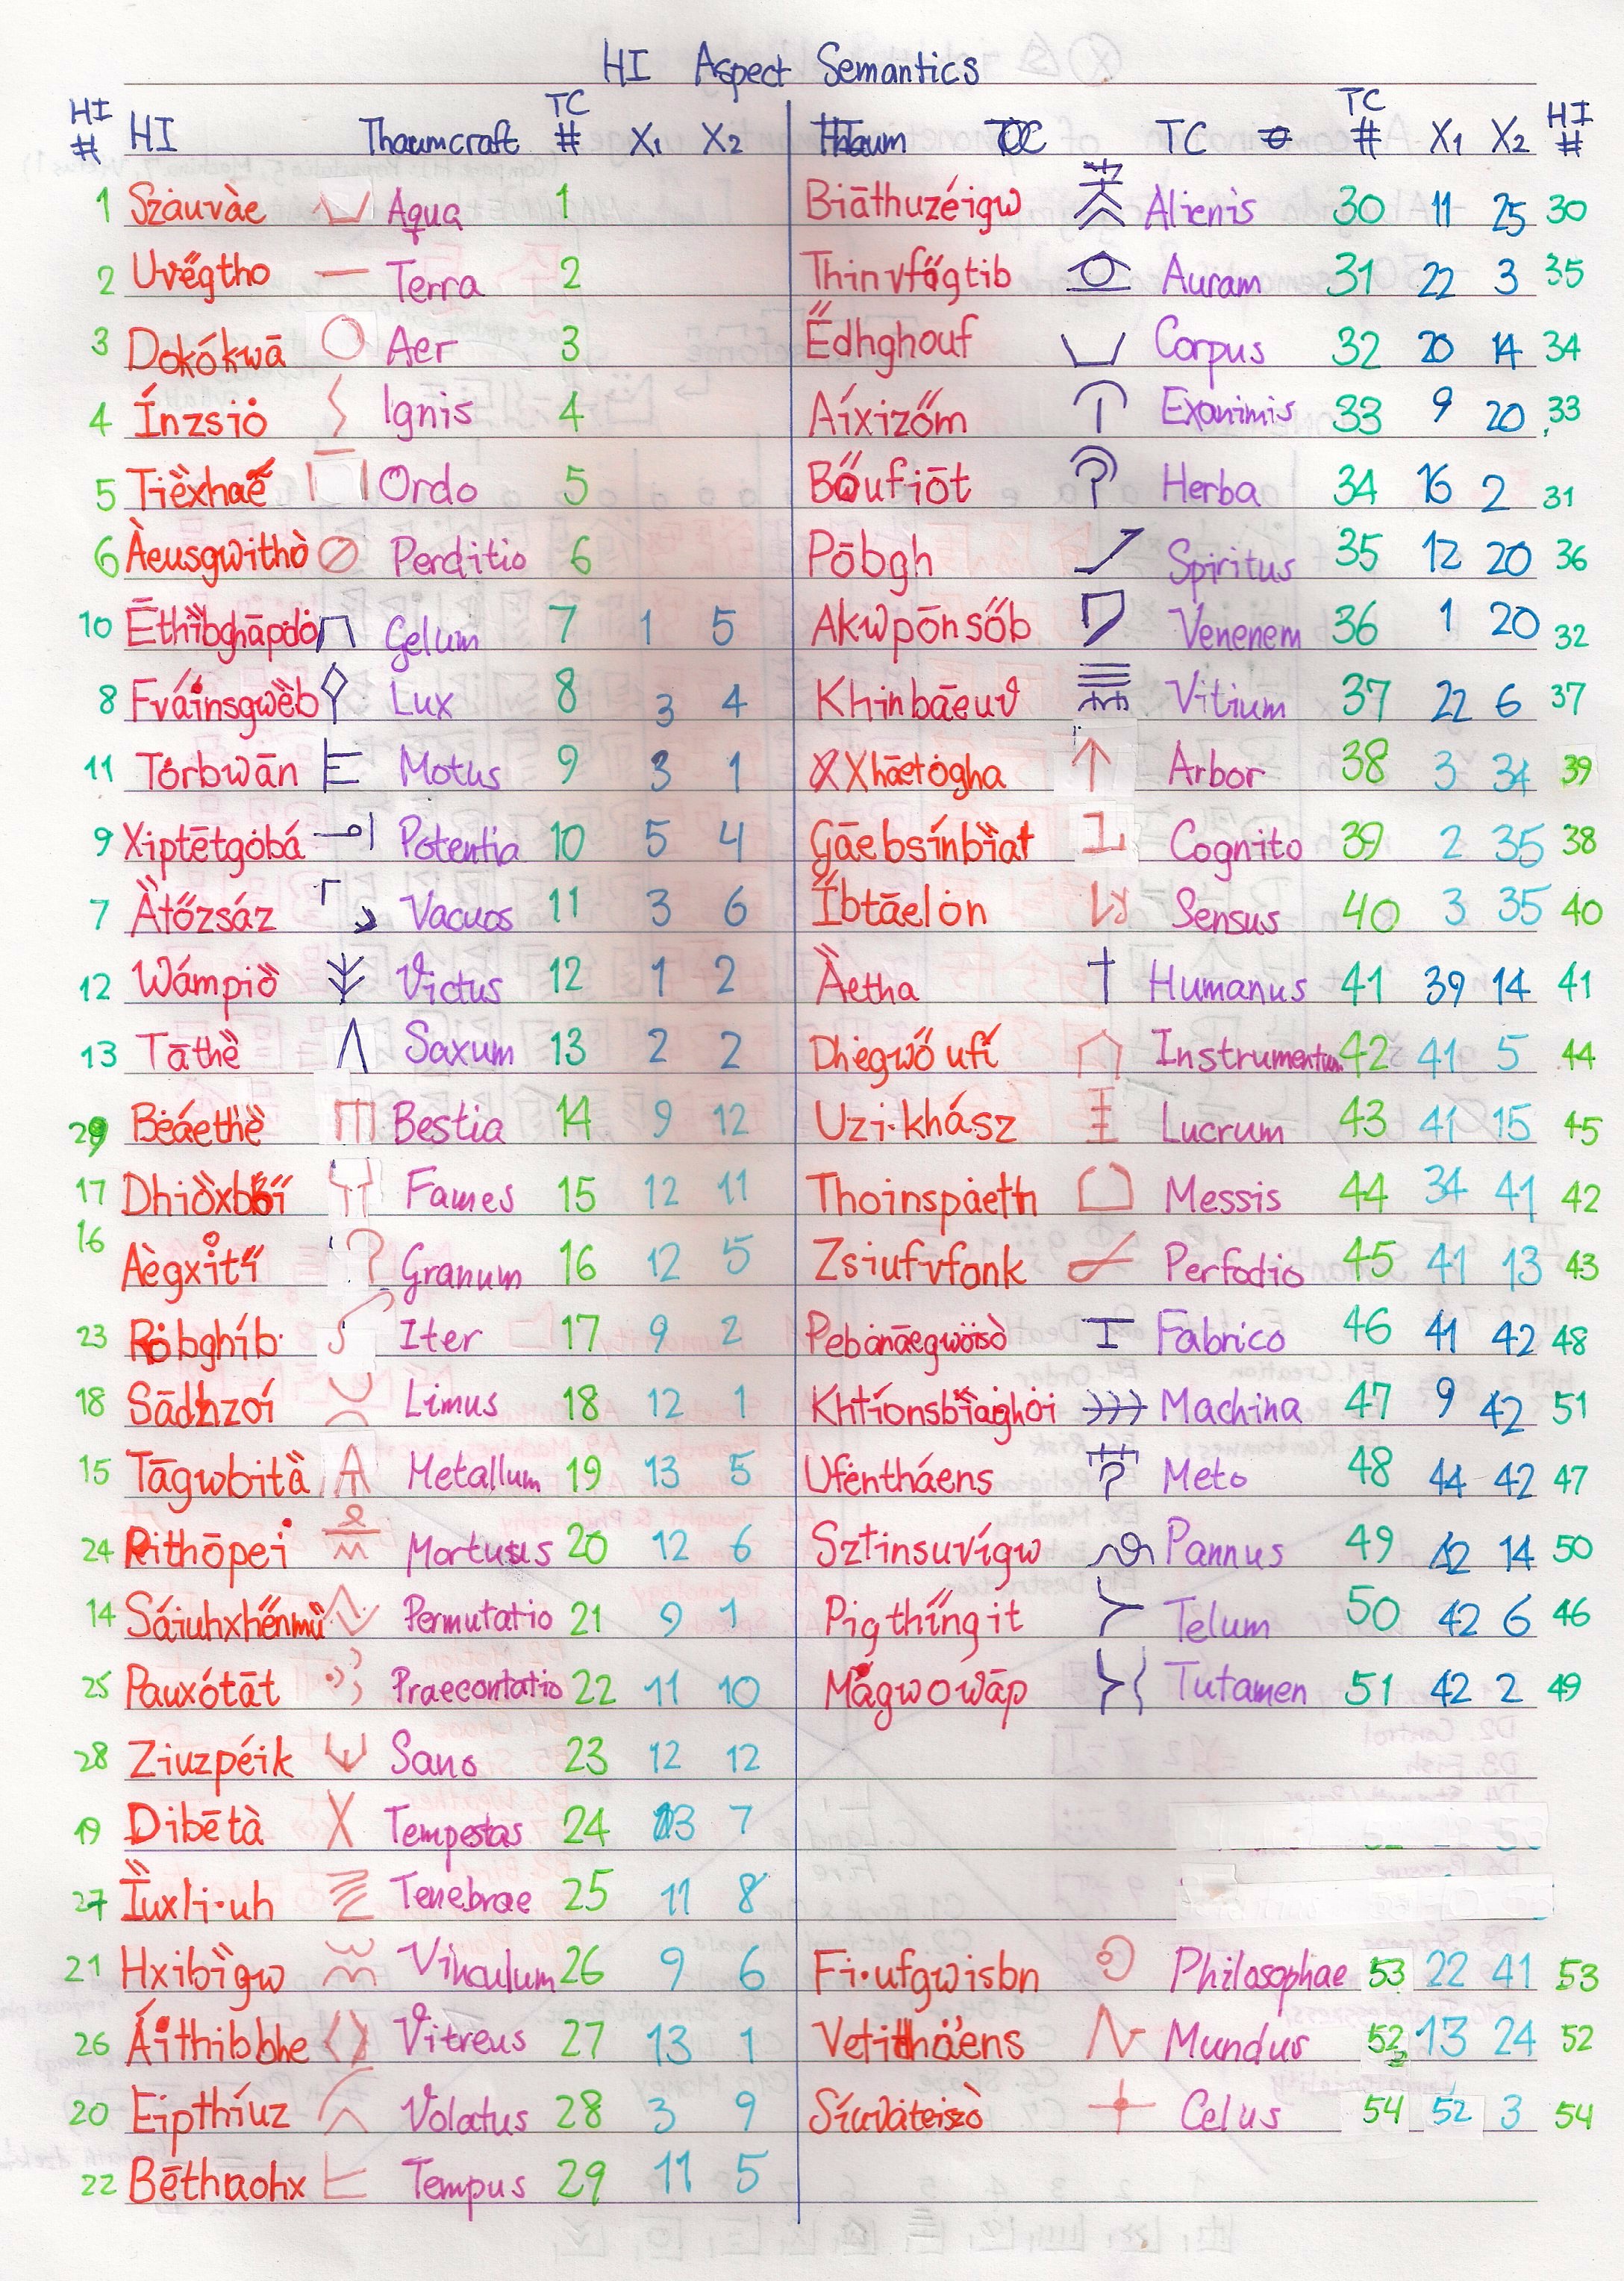 HI Aspect Semantics
HI # HI Thaumcraft TC # X1 X2
1 Szȧuvàe Aqua 1
2 Uve̋gtho Terra 2
3 Dokókwā Aer 3
4 Ínzsiȯ Ignis 4
5 Ordo 5
6 Àeusgwithò Perditio 6
10 Gelum 7 1 5
8 Lux 8 3 4
11 Tȯrbwān Motus 9 3 1
9 Xiptētgȯbá Potentia 10 5 4
7 Ȁtőzsáz Vacuos 11 3 6
12 Wámpiȍ Victus 12 1 2
13 Tāthȅ Saxum 13 2 2
29 Bėáethȅ Bestia 14 9 12
17 Fames 15 12 11
16 Granum 16 12 5
23 Rȯbghíb Iter 17 9 2
18 Sādhzoí Limus 18 12 1
15 Tāgwbitȁ Metallum 19 13 5
24 Rithōpei Mortuus 20 12 6
14 Permutatio 21 9 1
25 Pauxótāt Praecontatio 22 11 10
28 Ziuzpéik Sano 23 12 12
19 Dibētà Tempestas 24 13 7
27 Ȉuxli·uh Tenebrae 25 11 8
21 Hxibȉgw Vinculum 26 9 6
26 Áithibbhe Vitreus 27 13 1
20 Eipthíuz Volatus 28 3 9
22 Bēthaohx Tempus 29 11 5
TC TC # X1 X2 HI #
Biāthuzéigw Alienis 30 11 25 30
Thinvfa̋gtib Auram 31 22 3 35
E̋dhghouf Corpus 32 20 14 34
Aíxizőm Exanimis 33 9 20 33
Bőufiōt Herba 34 16 2 31
Pōbgh Spiritus 35 12 20 36
Akwpōnsőb Venenem 36 1 20 32
Khinbāeuv Vitium 37 22 6 37
Xhāetȯgha Arbor 38 3 34 39
Gāebsínbȉat Cognito 39 2 35 38
I̋btāelȯn Sensus 40 3 35 40
Ȁetha Humanus 41 39 14 41
Dhėgwőufi Instrumentum 42 41 5 44
Uzi·khász Lucrum 43 41 15 45
Thoinspȧeth Messis 44 34 41 42
Zsiufvfonk Perfodio 45 41 13 43
Fabrico 46 41 42 48
Machina 47 9 42 51
Ufėntháens Meto 48 44 42 47
Sztinsuvígw Pannus 49 42 14 50
Pigthi̋ngit Telum 50 42 6 46
Mágwowāp Tutamen 51 42 2 49
Fi·ufgwisbn Philosophae 53 22 41 53
Mundus 52 13 24 52
Celus 54 52 3 54